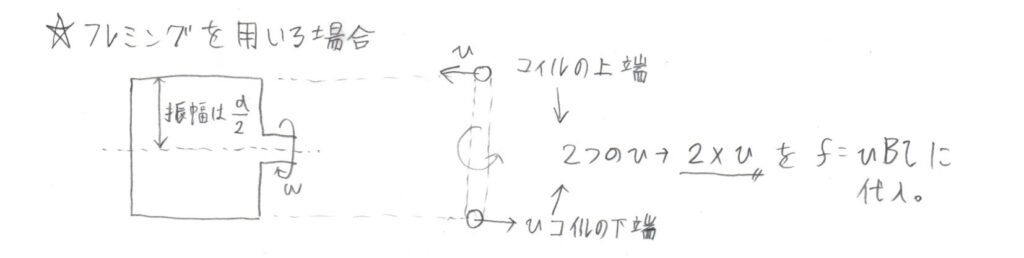 ☆ フレミングを用いる場合
振幅は d/2
ω
u
コイルの上端
2つのu → 2×u を f=uBlに
代入。
u コイルの下端